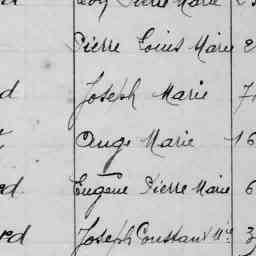 Pierre Marie 2
Pierre Louis Marie 2
d Joseph Marie 7
Ange Marie 16
rd Eugène Pierre Marie 6
rd Joseph Constant Mie 3